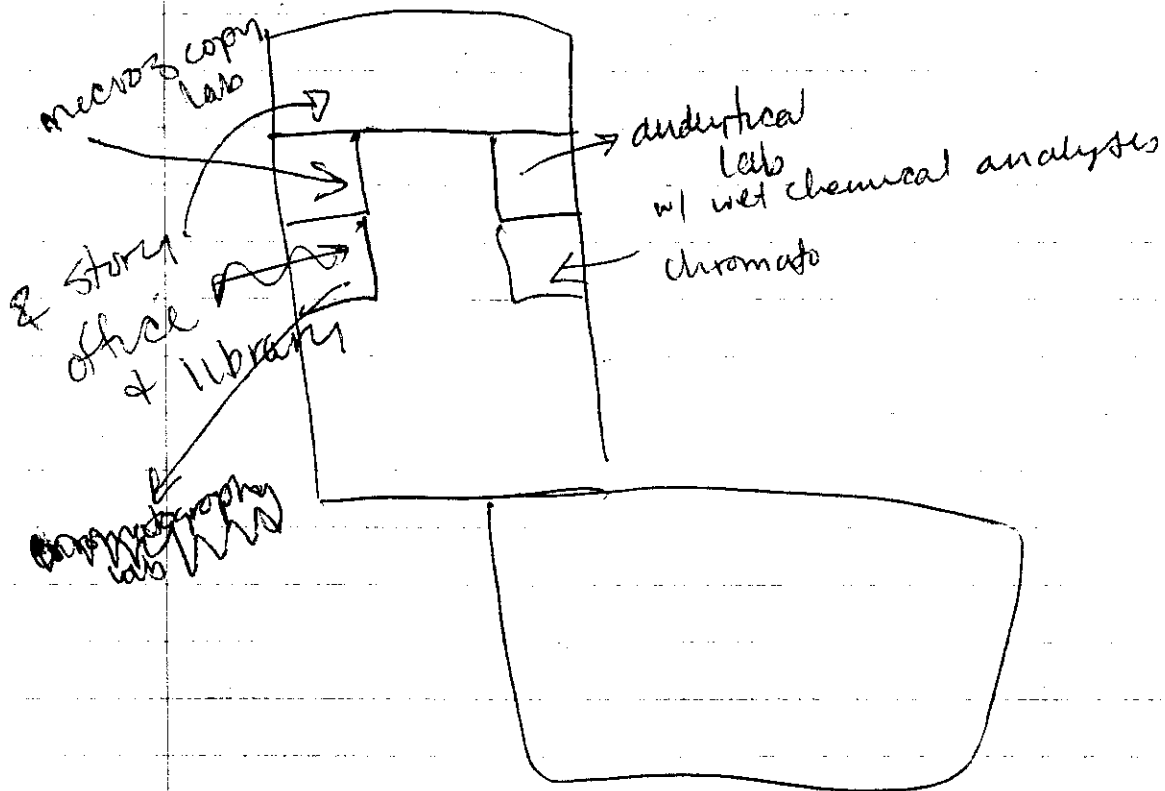 microscopy
lab
analytical
lab
w/ wet chemical analyses
chromato
& story
office
& library
lab